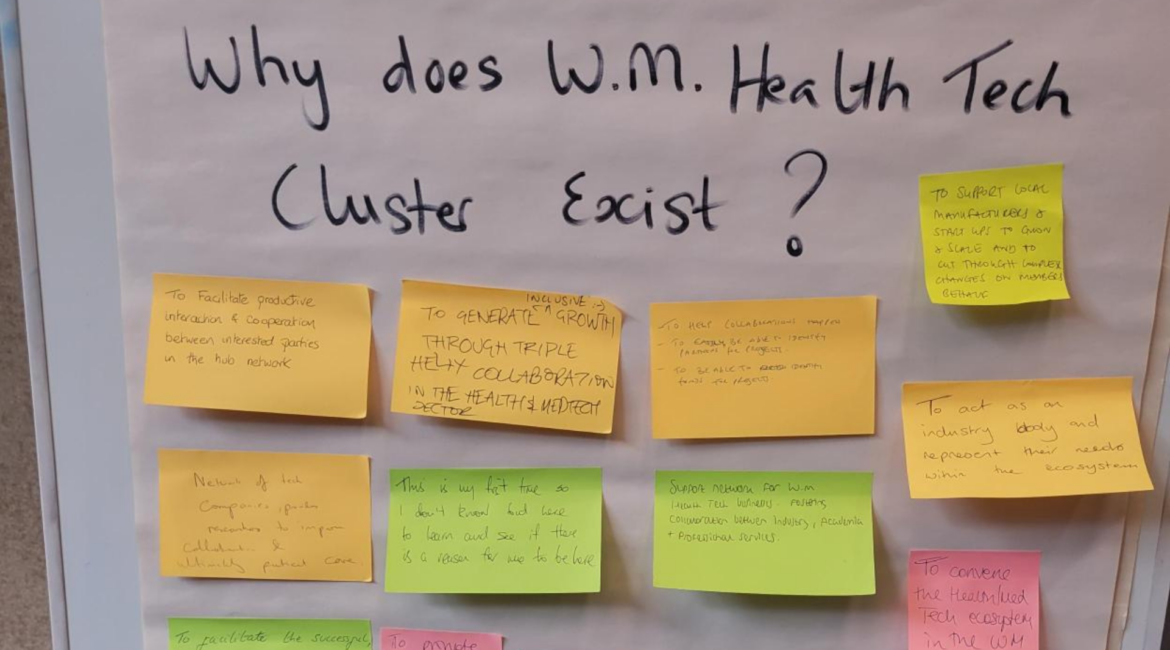 Why does W.M. Health Tech
Cluster Exist ?
TO SUPPORT LOCAL
MANUFACTURERS &
START UPS TO GROW
& SCALE AND TO
CUT THROUGH COMPLEX
CHANGES ON MEMBERS
BEHALF
To Facilitate productive
interaction & cooperation
between interested parties
in the hub network
INCLUSIVE :-)
TO GENERATE ^ GROWTH
THROUGH TRIPLE
HELIX COLLABORATION
IN THE HEALTH & MEDTECH
SECTOR
- TO HELP COLLABORATIONS HAPPEN
- TO BE ABLE TO IDENTIFY
PARTNERS for PROJECTS.
- TO BE ABLE TO IDENTIFY
for PROJECTS
To act as an
industry body and
represent their needs
within the ecosystem
Network of tech
Companies,
to improve
&
ultimately patient care
This is my first time so
I don't know but here
to learn and see if there
is a reason for me to be here
Support network for W.M
Health Tech business. Fostering
Collaboration between Industry, Academia
+ Professional Services.
To convene
the Health/Med
Tech ecosystem
in the WM
To facilitate the successful,
To promote